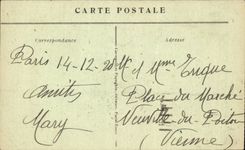 CARTE POSTALE
Correspondance
Adresse
Paris 14-12-20
Amitiés
Mary
M et Mme Turque
Place du Marché
Neuville du Poitou
(Vienne)